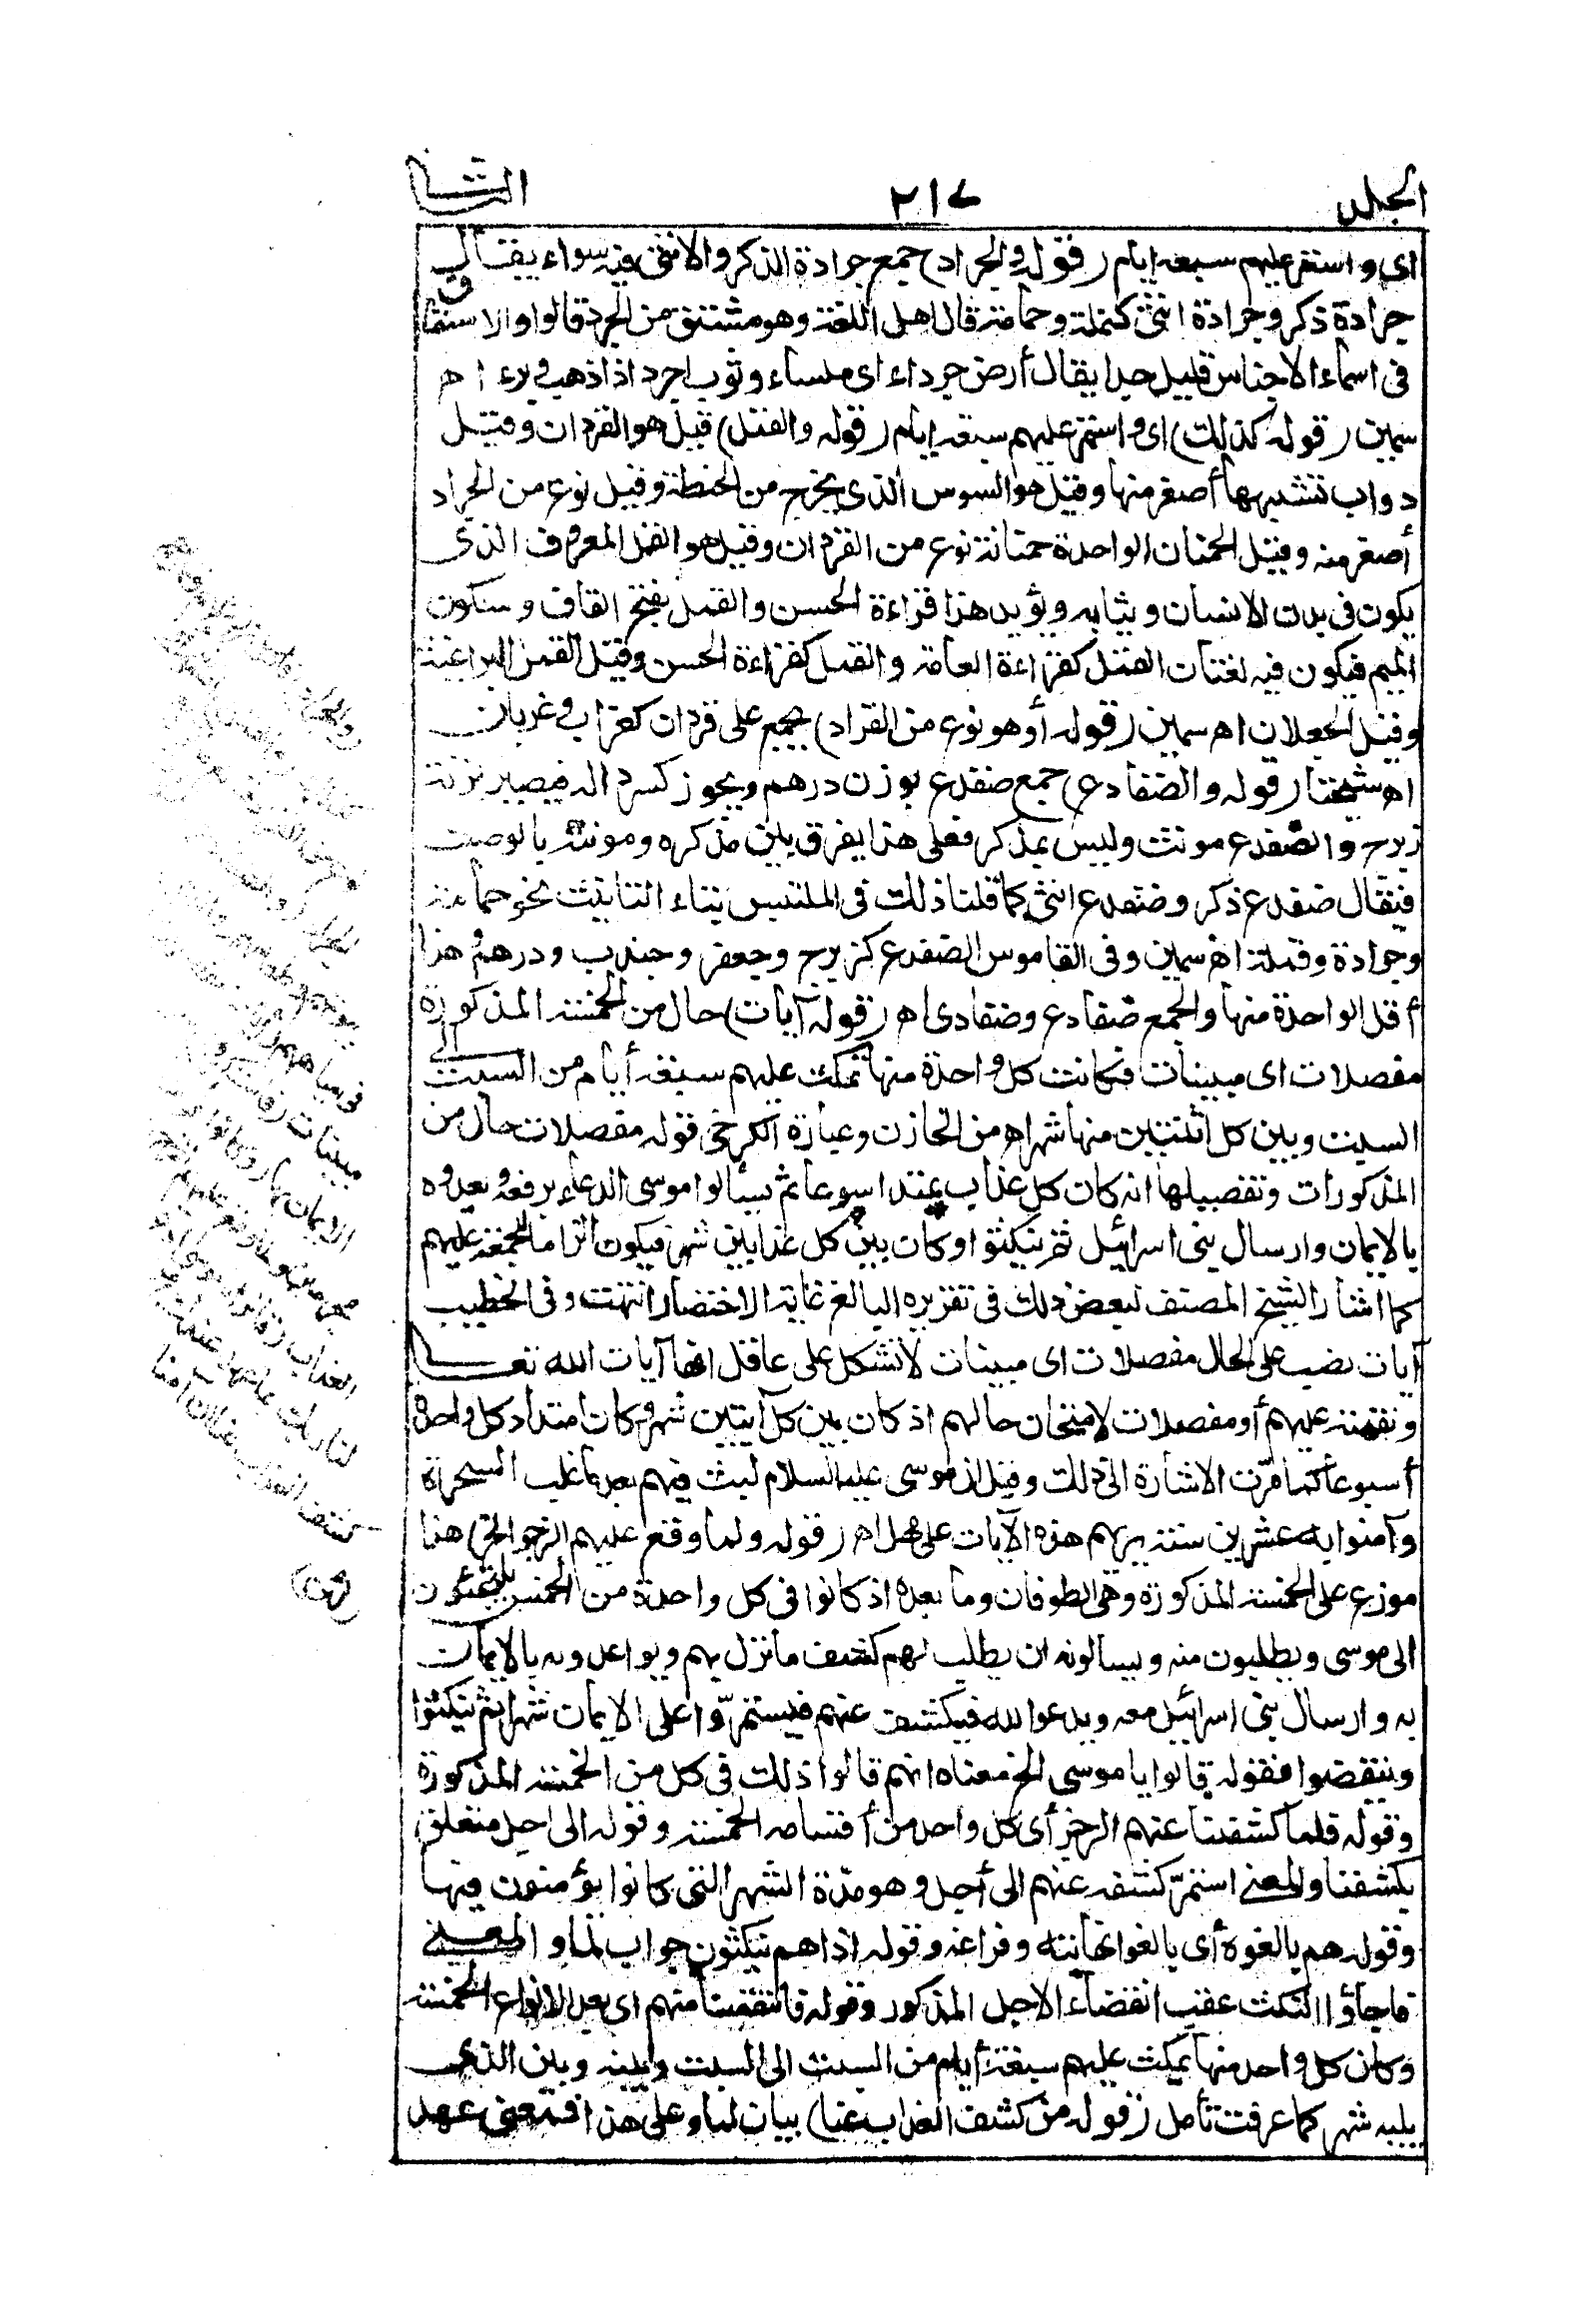 الجلد ٢١٧ الثانى
اى واستمر عليهم سبعة ايام (قوله والجراد) جمع جرادة الذكر والانثى فيه سواء يقال
جرادة ذكر وجرادة انثى كنملة وحمامة قال اهل اللغة وهو مشتق من الجرد قالوا والاشتقاق
فى اسماء الاجناس قليل جدا يقال أرض جرداء اى ملساء وثوب اجرد اذا ذهب وبره اه
سمين (قوله كذلك) اى واستمر عليهم سبعة ايام (قوله والقمل) قيل هو القردان وقيل
دواب تشبهها أصغر منها وقيل هو السوس الذى يخرج من الحنطة وقيل نوع من الجراد
أصغر منه وقيل الحمنان الواحدة حمنانة نوع من القردان وقيل هو القمل المعروف الذى
يكون فى بدن الانسان وثيابه ويؤيد هذا قراءة الحسن والقمل بفتح القاف وسكون
الميم فيكون فيه لغتان القمل كقراءة العامة والقمل كقراءة الحسن وقيل القمل البراغيث
وقيل الجعلان اه سمين (قوله أو هو نوع من القراد) يجمع على قردان كغراب وغربان
اه شيخنا (قوله والضفادع) جمع ضفدع بوزن درهم ويجوز كسر داله فيصير بزنة
زبرج والضفدع مونث وليس بمذكر فعلى هذا يفرق بين مذكره ومونثه بالوصف
فيقال ضفدع ذكر وضفدع انثى كما قلنا ذلك فى الملتبس بتاء التانيث نحو حمامة
وجرادة وقملة اه سمين وفى القاموس الضفدع كزبرج وجعفر وجندب ودرهم وهذا
أقل الواحدة منها والجمع ضفادع وضفادى اه (قوله آيات) حال من الخمسة المذكورة
مفصلات اى مبينات فكانت كل واحدة منها تمكث عليهم سبعة أيام من السبت الى
السبت وبين كل اثنتين منها شهر اه من الخازن وعبارة الكرخى قوله مفصلات حال من
المذكورات وتفصيلها انه كان كل عذاب يمتد اسبوعا ثم يسالوا موسى الدعاء برفعه ويعدوه
بالايمان وارسال بنى اسرائيل ثم ينكثوا وكان بين كل عذابين شهر فيكون الزاما للحجة عليهم
كما اشار الشيخ المصنف لبعض ذلك فى تقريره البالغ غاية الاختصار انتهت وفى الخطيب
آيات نصب على الحال مفصلات اى مبينات لا تشكل على عاقل انها آيات الله تعالى
ونقمته عليهم أو مفصلات لامتحان حالهم اذ كان بين كل آيتين شهر وكان امتداد كل واحدة
أسبوعا كما مرت الاشارة الى ذلك وقيل ان موسى عليه السلام لبث فيهم بعد ما غلب السحرة
وآمنوا به عشرين سنة يريهم هذه الآيات على مهل اه (قوله ولما وقع عليهم الرجز الخ) هذا
موزع على الخمسة المذكورة وهى الطوفان وما بعده اذ كانوا فى كل واحدة من الخمس يلتجئون
الى موسى ويطلبون منه ويسالونه ان يطلب لهم كشف ما نزل بهم ويواعدونه بالايمان
به وارسال بنى اسرائيل معه ويدعو الله فيكشف عنهم فيستمرّوا على الايمان شهرا ثم ينكثوا
وينقضوا فقوله قالوا يا موسى الخ معناه انهم قالوا ذلك فى كل من الخمسة المذكورة
وقوله فلما كشفنا عنهم الرجز أى كل واحد من أقسامه الخمسة وقوله الى اجل متعلق
بكشفنا والمعنى استمرّ كشفه عنهم الى أجل وهو مدّة الشهر التى كانوا يؤمنون فيها
وقوله هم بالغوه أى بالغوا نهايته وفراغه وقوله اذا هم ينكثون جواب لما والمعنى
فاجاؤا النكث عقب انقضاء الاجل المذكور وقوله فانتقمنا منهم اى بعد الانواع الخمسة
وكان كل واحد منها يمكث عليهم سبعة أيام من السبت الى السبت وبينه وبين الذى
يليه شهر كما عرفت تأمل (قوله من كشف العذاب عنا) بيان لما وعلى هذا فمعنى عهد
مبينات
العذاب
لنا ربك بما عهد عندك
كشف العذاب عنا ان امنا